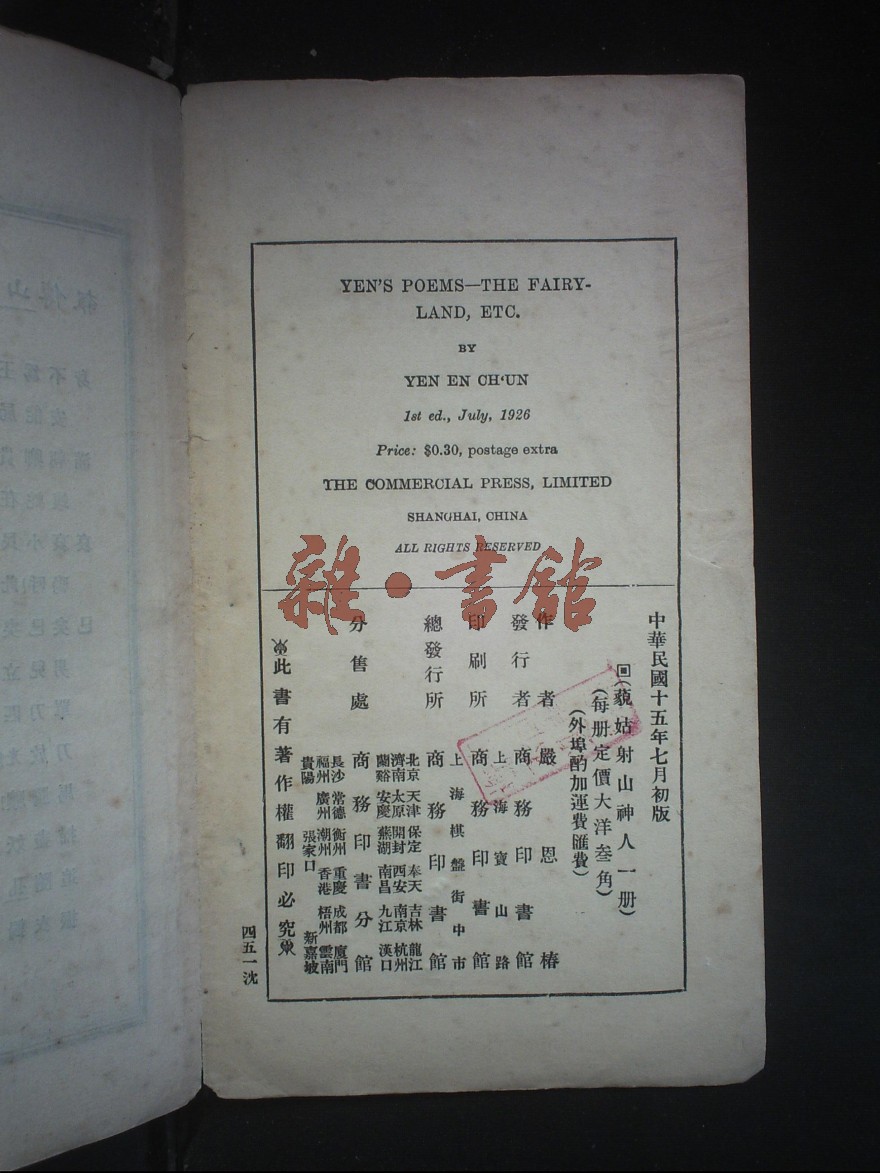 YEN'S POEMS—THE FAIRY-
LAND, ETC.
BY
YEN EN CH'UN
1st ed., July, 1926
Price: $0.30, postage extra
THE COMMERCIAL PRESS, LIMITED
SHANGHAI, CHINA
ALL RIGHTS RESERVED
雜·書館
中華民國十五年七月初版
回(藐姑射山神人一册)
(每册定價大洋叁角)
(外埠酌加運費匯費)
作者 嚴恩椿
發行者 商務印書館
上海寶山路
印刷所 商務印書館
上海棋盤街中市
總發行所 商務印書館
北京 天津 保定 奉天 吉林 龍江
濟南 太原 開封 西安 南京 杭州
蘭谿 安慶 蕪湖 南昌 九江 漢口
分售處 商務印書分館
長沙 常德 衡州 重慶 成都 廈門
福州 廣州 潮州 香港 梧州 雲南
貴陽 張家口 新嘉坡
此書有著作權翻印必究
四五一沈